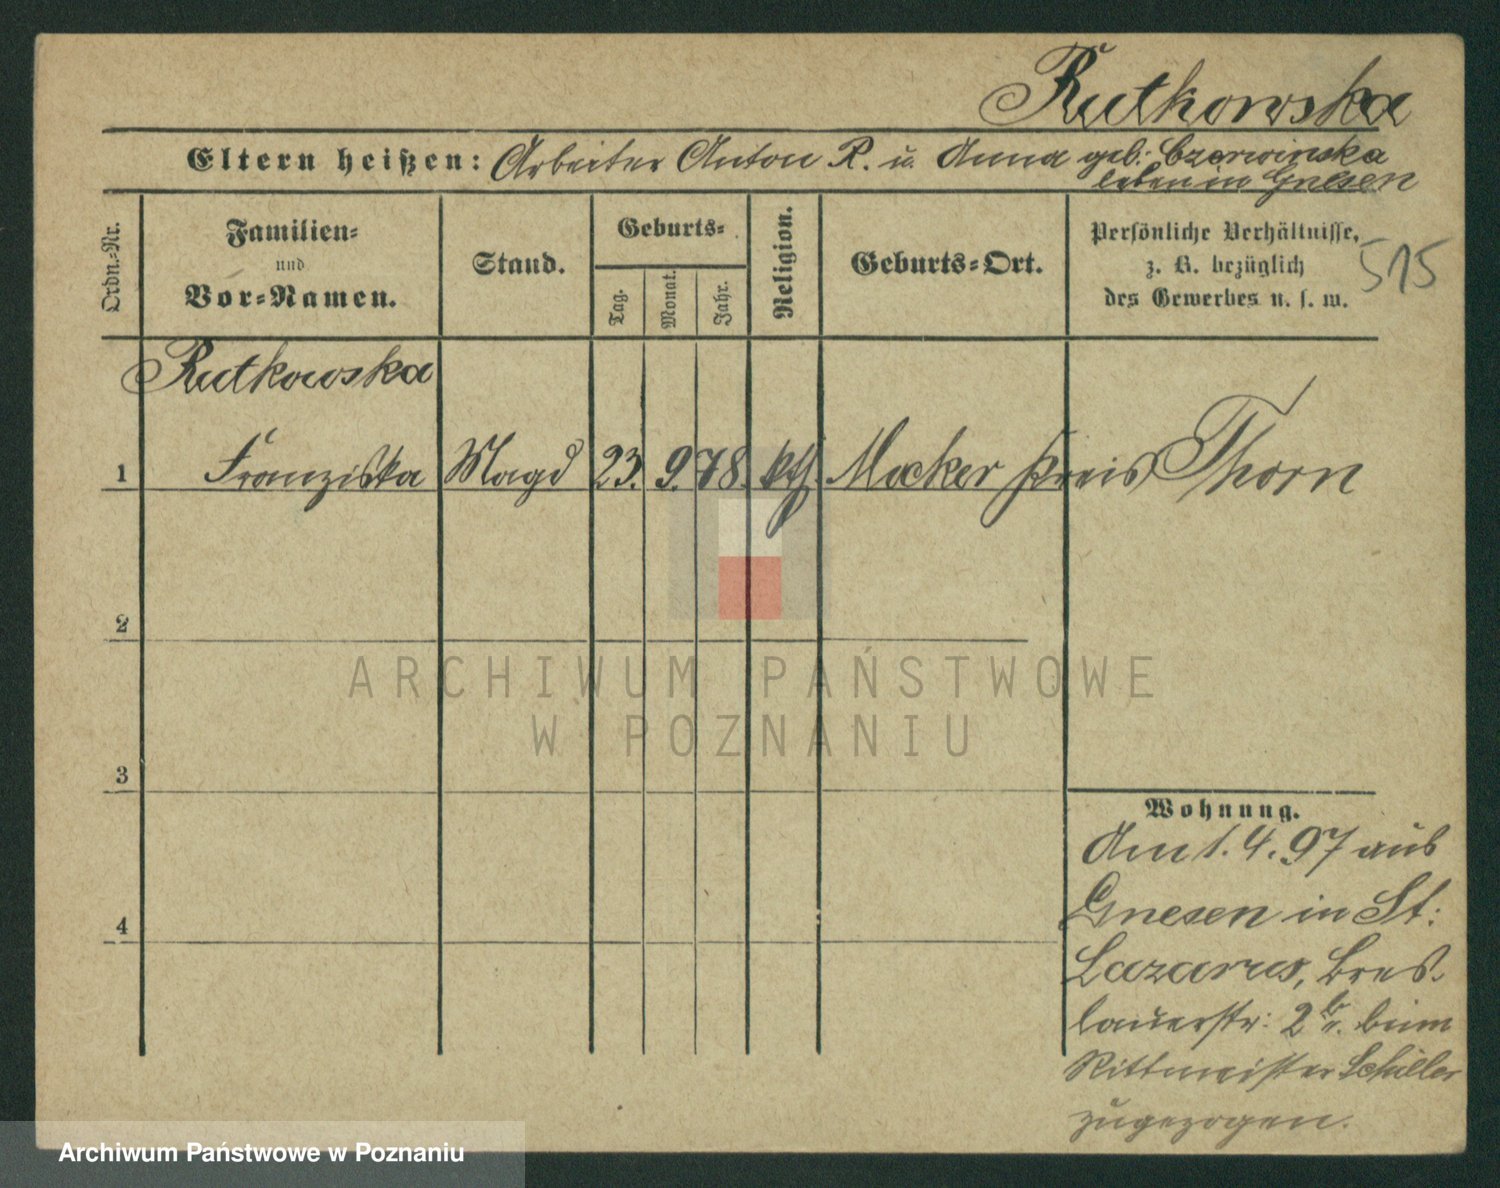 Rutkowska
Eltern heißen: Arbeiter Anton R. u. Anna geb. Czerwinska
leben in Gnesen
Ordn.-Nr.
Familien-
und
Vor-Namen.
Stand.
Geburts-
Tag.
Monat.
Jahr.
Religion.
Geburts-Ort.
Persönliche Verhältnisse,
z. B. bezüglich
des Gewerbes u. s. w.
515
Rutkowska
1 Franziska Magd 23. 9. 78. kth. Mocker Kreis Thorn
2
3
4
Wohnung.
Am 1. 4. 97 aus
Gnesen in St:
Lazarus, Bres-
lauerstr: 2 beim
Rittmeister Schiller
zugezogen.
ARCHIWUM PAŃSTWOWE
W POZNANIU
Archiwum Państwowe w Poznaniu